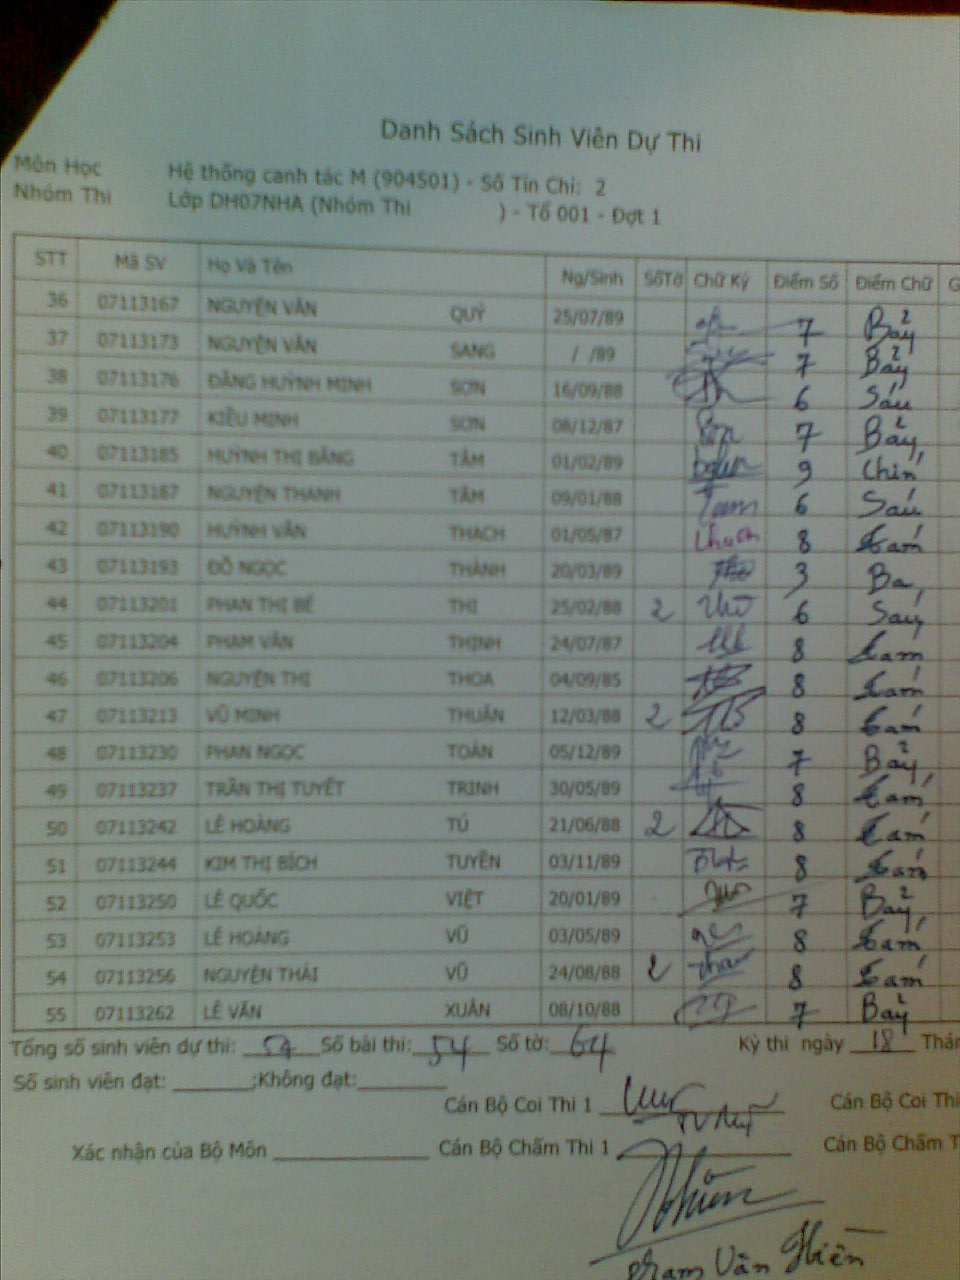 Danh Sách Sinh Viên Dự Thi
Môn Học Hệ thống canh tác M (904501) - Số Tín Chỉ: 2
Nhóm Thi Lớp DH07NHA (Nhóm Thi ) - Tổ 001 - Đợt 1
STT Mã SV Họ Và Tên Ng/Sinh SốTờ Chữ Ký Điểm Số Điểm Chữ G
36 07113167 NGUYỄN VĂN QUÝ 25/07/89 7 Bảy
37 07113173 NGUYỄN VĂN SANG / /89 7 Bảy
38 07113176 ĐẶNG HUỲNH MINH SƠN 16/09/88 6 Sáu
39 07113177 KIỀU MINH SƠN 08/12/87 7 Bảy
40 07113185 HUỲNH THỊ BĂNG TÂM 01/02/89 9 Chín
41 07113187 NGUYỄN THANH TÂM 09/01/88 6 Sáu
42 07113190 HUỲNH VĂN THẠCH 01/05/87 Thạch 8 Tám
43 07113193 ĐỖ NGỌC THÀNH 20/03/89 3 Ba
44 07113201 PHAN THỊ BÉ THI 25/02/88 2 6 Sáu
45 07113204 PHẠM VĂN THỊNH 24/07/87 8 Tám
46 07113206 NGUYỄN THỊ THOA 04/09/85 8 Tám
47 07113213 VŨ MINH THUẤN 12/03/88 2 8 Tám
48 07113230 PHAN NGỌC TOÀN 05/12/89 7 Bảy
49 07113237 TRẦN THỊ TUYẾT TRINH 30/05/89 8 Tám
50 07113242 LÊ HOÀNG TÚ 21/06/88 2 8 Tám
51 07113244 KIM THỊ BÍCH TUYỀN 03/11/89 8 Tám
52 07113250 LÊ QUỐC VIỆT 20/01/89 7 Bảy
53 07113253 LÊ HOÀNG VŨ 03/05/89 8 Tám
54 07113256 NGUYỄN THÁI VŨ 24/08/88 2 8 Tám
55 07113262 LÊ VĂN XUÂN 08/10/88 7 Bảy
Tổng số sinh viên dự thi: 54 Số bài thi: 54 Số tờ: 64 Kỳ thi ngày 18 Thán
Số sinh viên đạt: ;Không đạt:
Cán Bộ Coi Thi 1 Cán Bộ Coi Thi
Xác nhận của Bộ Môn Cán Bộ Chấm Thi 1 Cán Bộ Chấm T
Phạm Văn Hiền